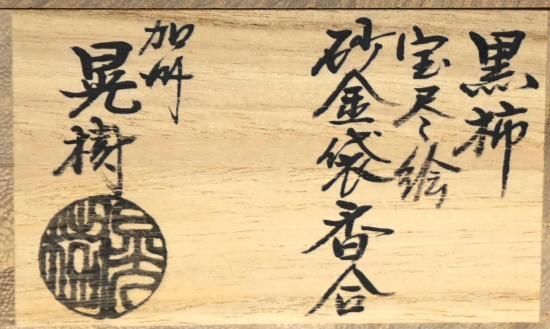 黒柿
宝尽く絵
砂金袋香合
加州
晃樹
晃樹